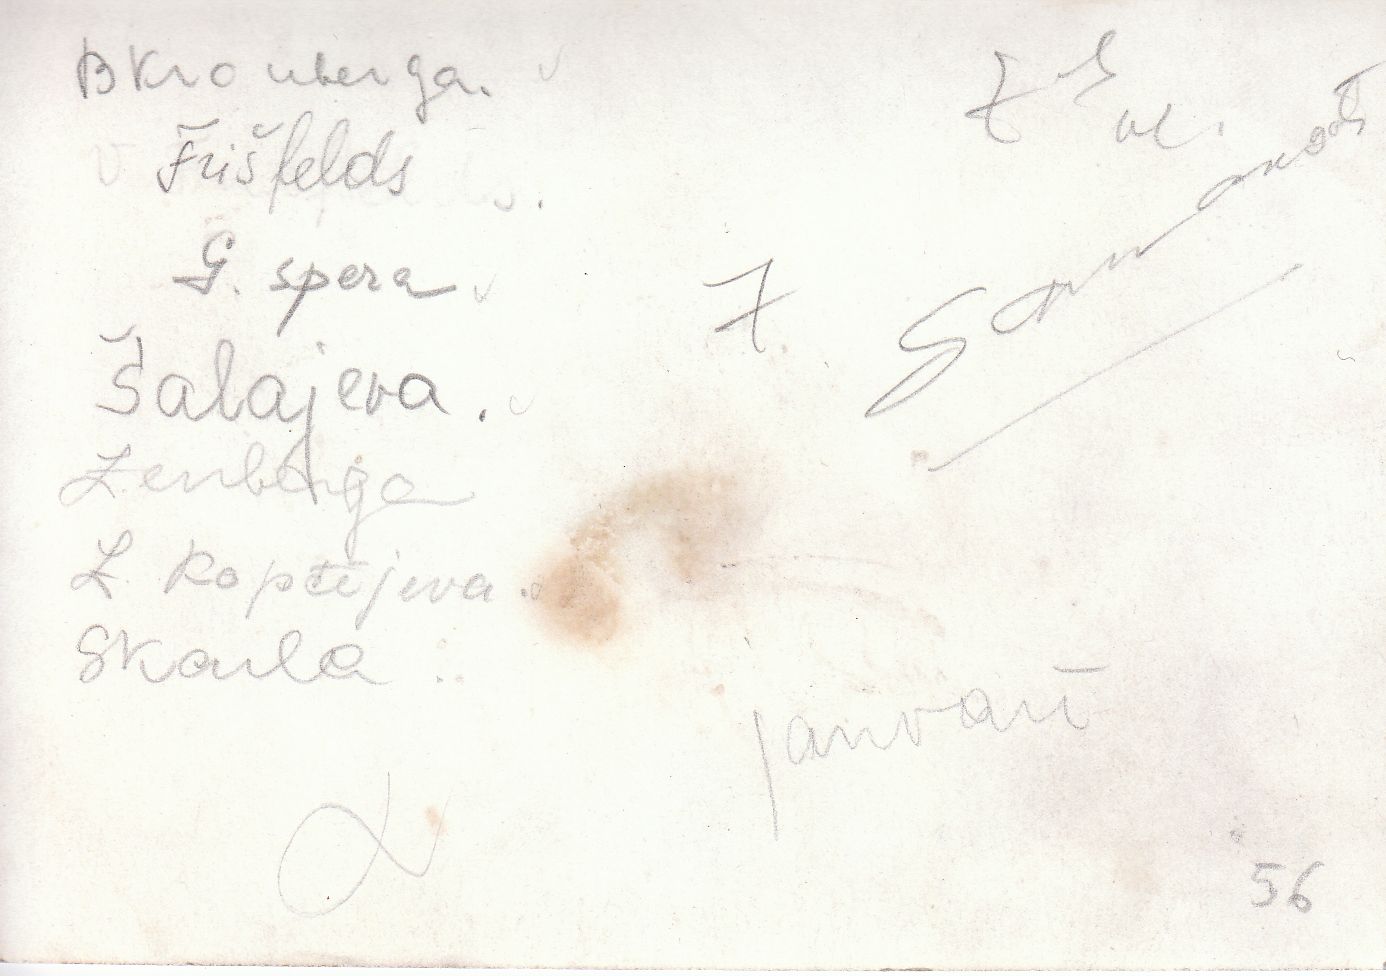 B Kronberga.
Frišfelds
G. spera
Šalajeva.
Zenberga
Z. Koptējeva.
Skaula
7
7
janvarī
56